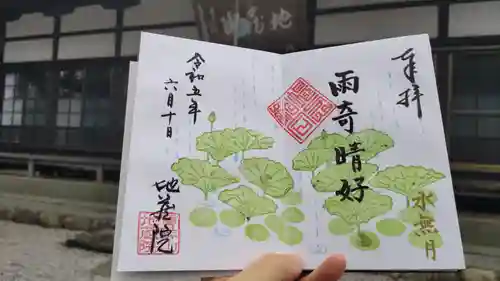 奉拝
雨奇晴好
水無月
令和五年
六月十日
地蔵院